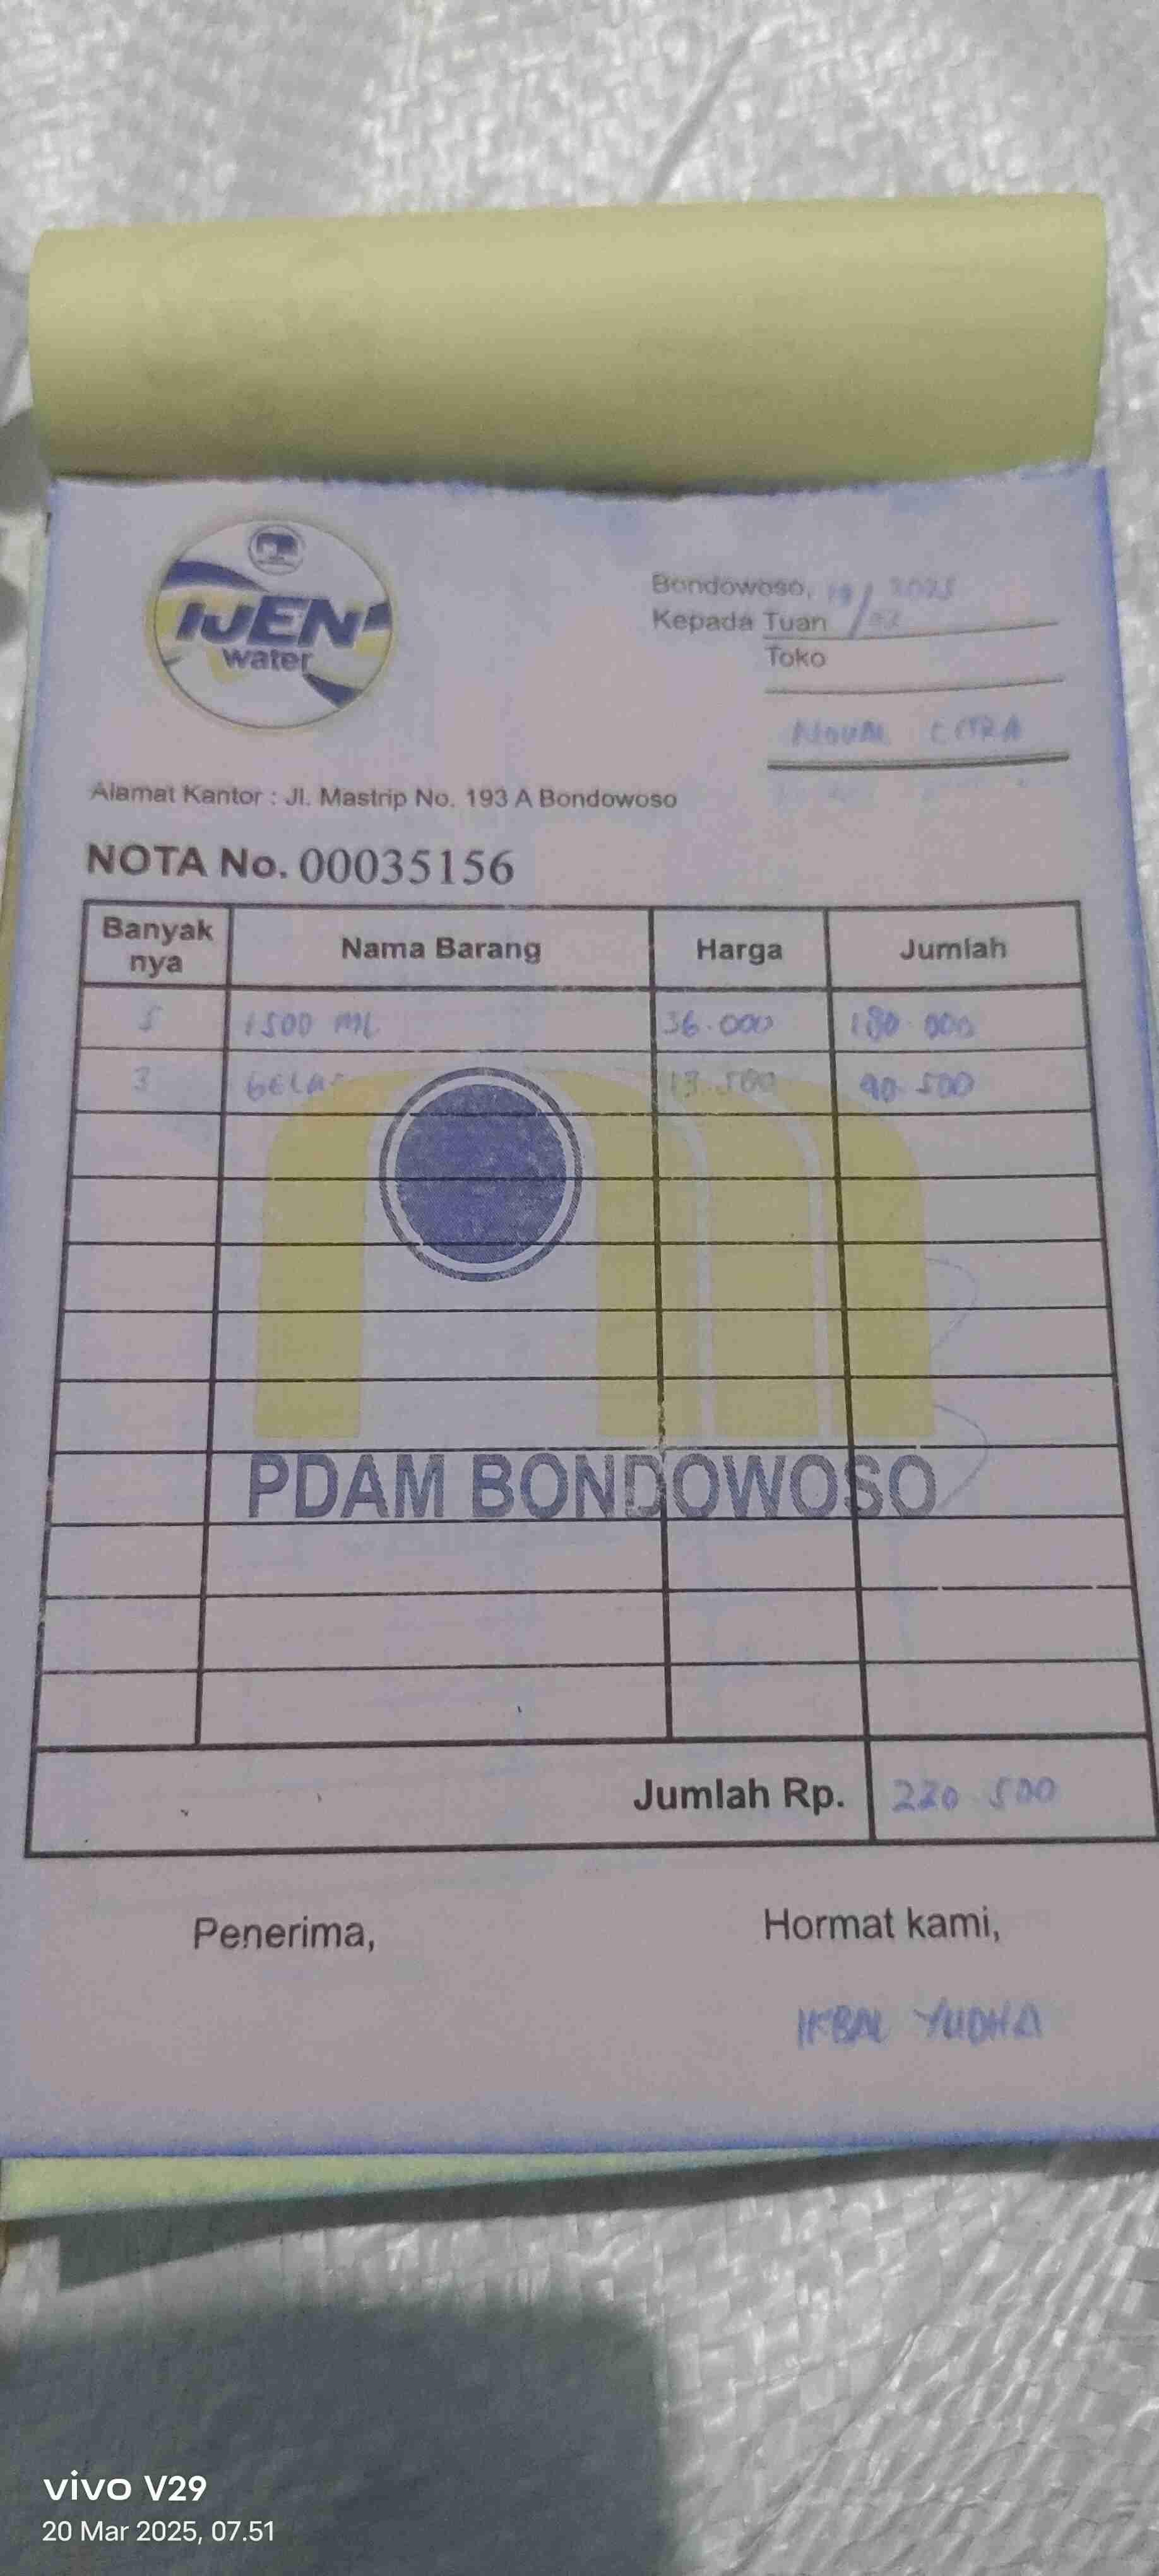 IJEN
water
Bondowoso, 19/ 2025
Kepada Tuan
Toko
CITRA
Alamat Kantor : Jl. Mastrip No. 193 A Bondowoso
NOTA No. 00035156
Banyak nya Nama Barang Harga Jumlah
5 1500 ML 36.000 180.000
3 GELAS 13.500 40.500
PDAM BONDOWOSO
Jumlah Rp. 220 500
Penerima, Hormat kami,
IKBAL YUDHA
vivo V29
20 Mar 2025, 07.51